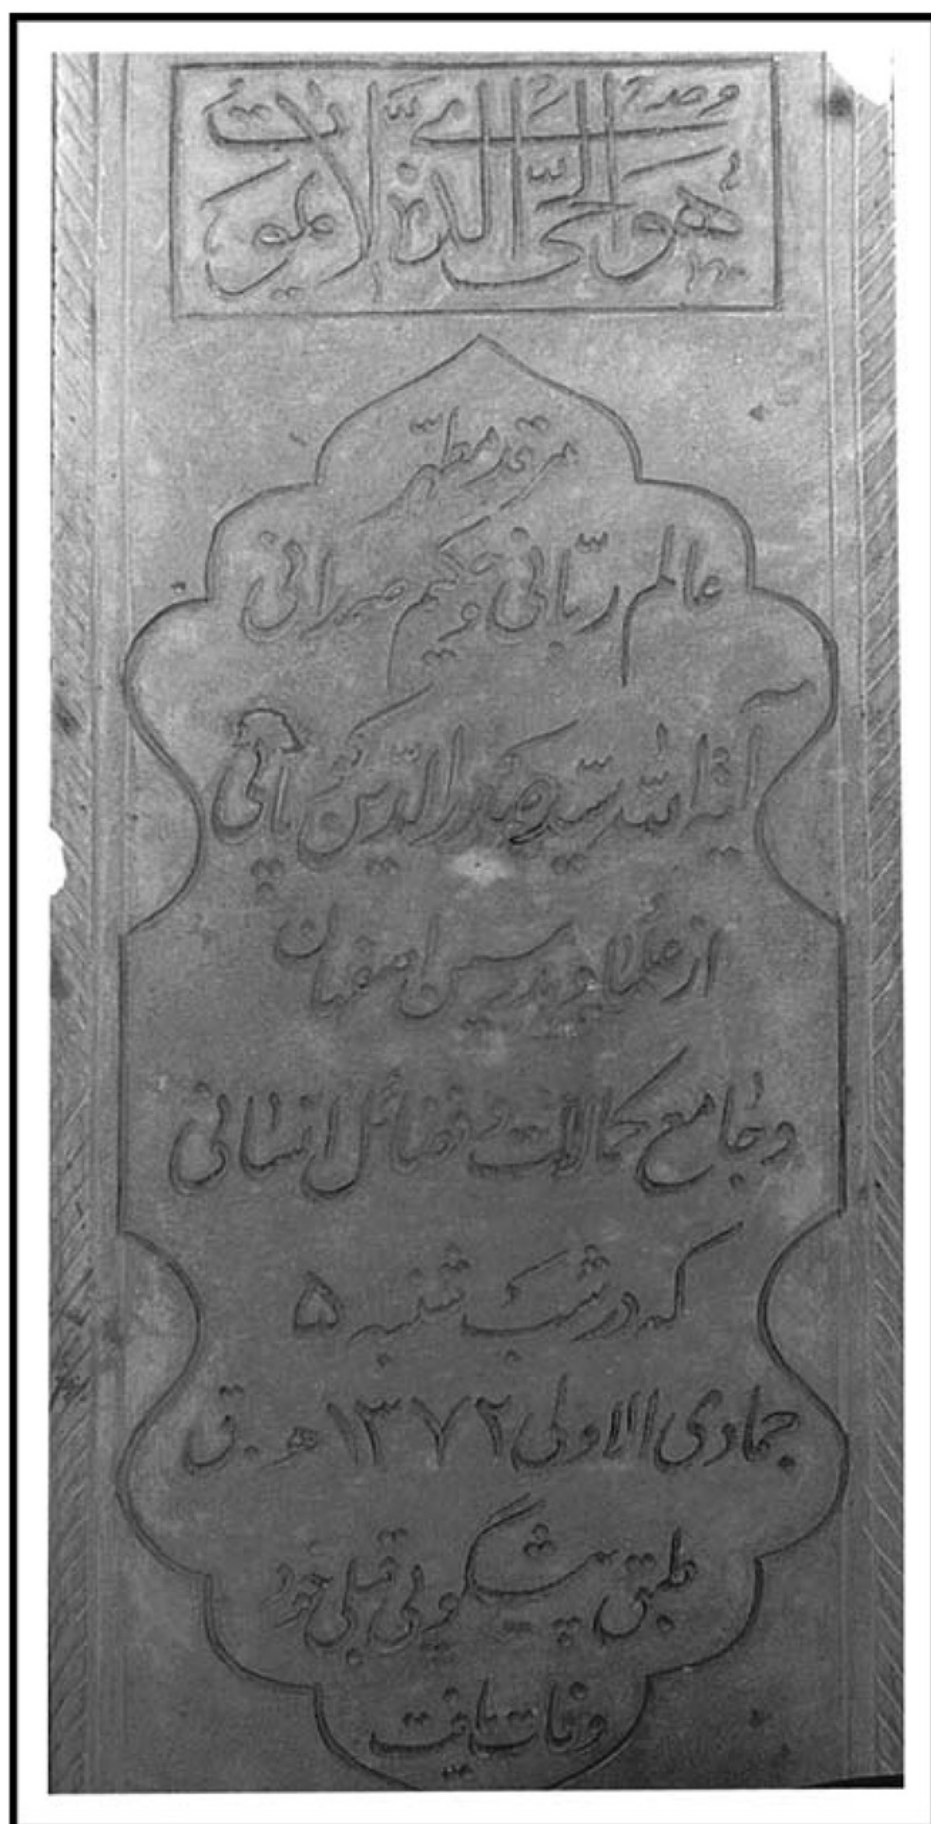 هو الحی الذی لا یموت
مرقد مطهر
عالم ربّانی و حکیم صمدانی
آیة الله سیّد صدرالدّین کوپائی
از علما و مدرسین اصفهان
و جامع کمالات و فضائل انسانی
که در شب شنبه ۵
جمادی الاولی ۱۳۷۲ ه.ق
طبق پیشگویی قبلی خود
وفات یافت